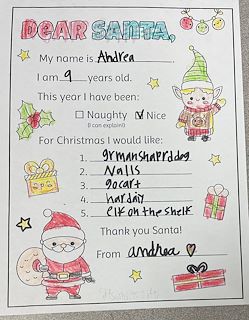 DEAR SANTA,
My name is Andrea.
I am 9 years old.
This year I have been:
Naughty Nice
(I can explain!)
For Christmas I would like:
1. grmanshaprddog
2. Nalls
3. gocart
4.
5. elf on the shelf
Thank you Santa!
From andrea